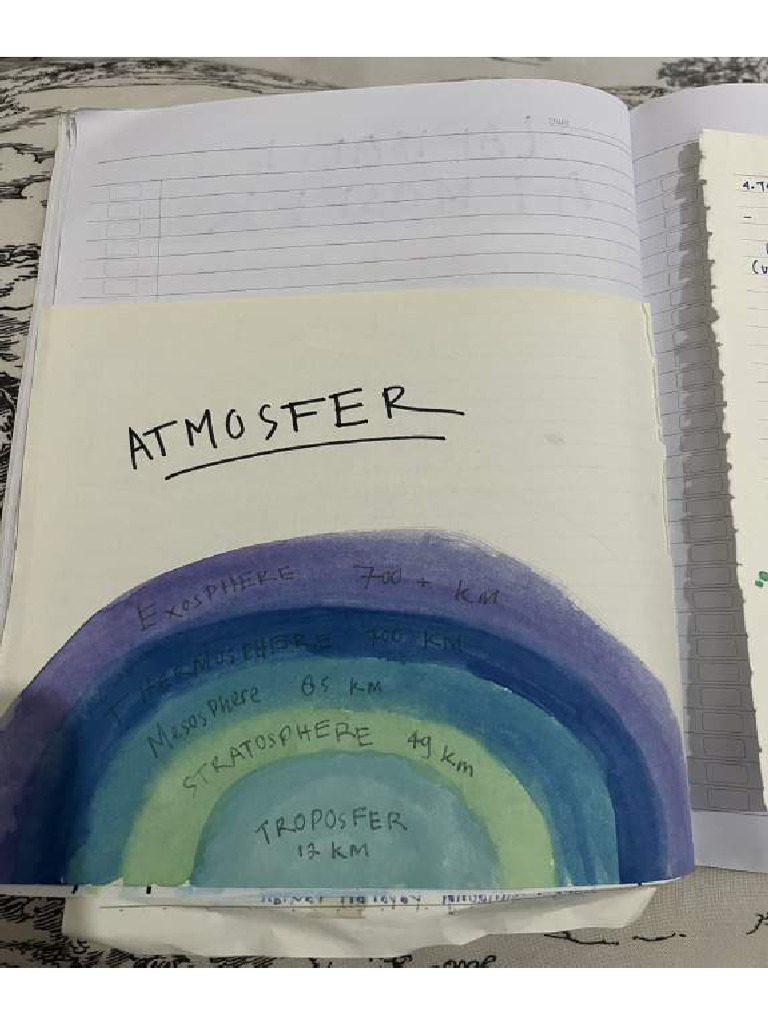 ATMOSFER
EXOSPHERE 700 + KM
THERMOSPHERE 700 KM
Mesosphere 85 KM
STRATOSPHERE 49 Km
TROPOSFER
12 KM